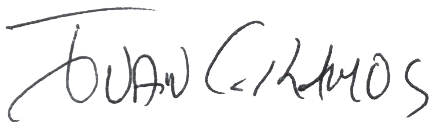 JUAN C. RAMOS